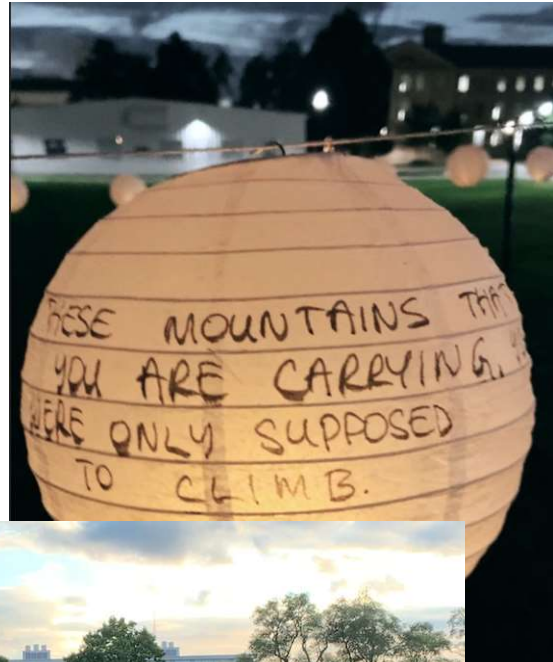 THESE MOUNTAINS THAT
YOU ARE CARRYING,
WERE ONLY SUPPOSED
TO CLIMB.